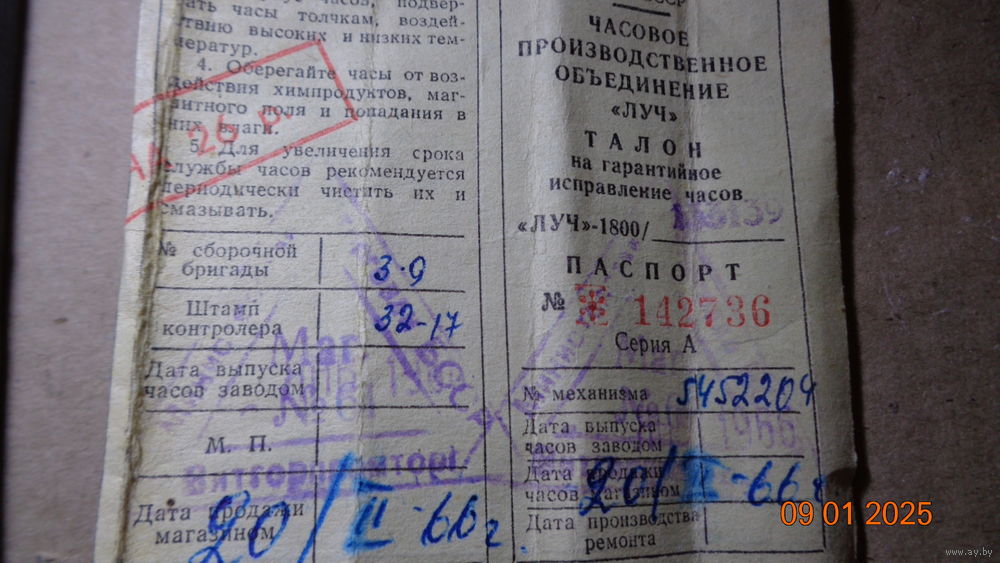 часов, подвер-
гать часы толчкам, воздей-
ствию высоких и низких тем-
ператур.
4. Оберегайте часы от воз-
действия химпродуктов, маг-
нитного поля и попадания в
них влаги.
5. Для увеличения срока
службы часов рекомендуется
периодически чистить их и
смазывать.
26 р.
№ сборочной
бригады
3-9
Штамп
контролера
32-17
Дата выпуска
часов заводом
М. П.
Маг
№ 61
Витгорпромторг
Дата продажи
магазином
20/II-66 г.
СССР
ЧАСОВОЕ
ПРОИЗВОДСТВЕННОЕ
ОБЪЕДИНЕНИЕ
«ЛУЧ»
ТАЛОН
на гарантийное
исправление часов
«ЛУЧ»-1800/
ПАСПОРТ
№ 142736
Серия А
№ механизма 5452204
Дата выпуска
часов заводом
1966
Дата продажи
часов магазином
20/II-66 г.
Дата производства
ремонта
09 01 2025
www.ay.by